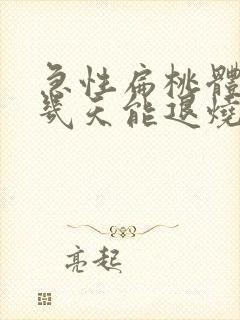 急性扁桃體
幾天能退燒
亮起